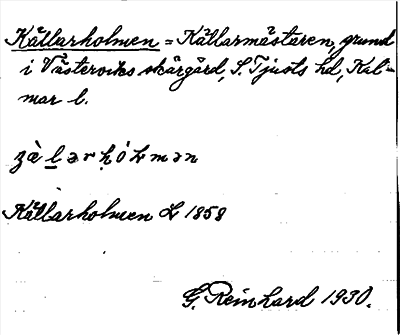 Källarholmen = Källarmästaren, grund
i Västerviks skärgård, S. Tjusts hd, Kal-
mar l.
Källarholmen L 1858
G. Reinhard 1930.